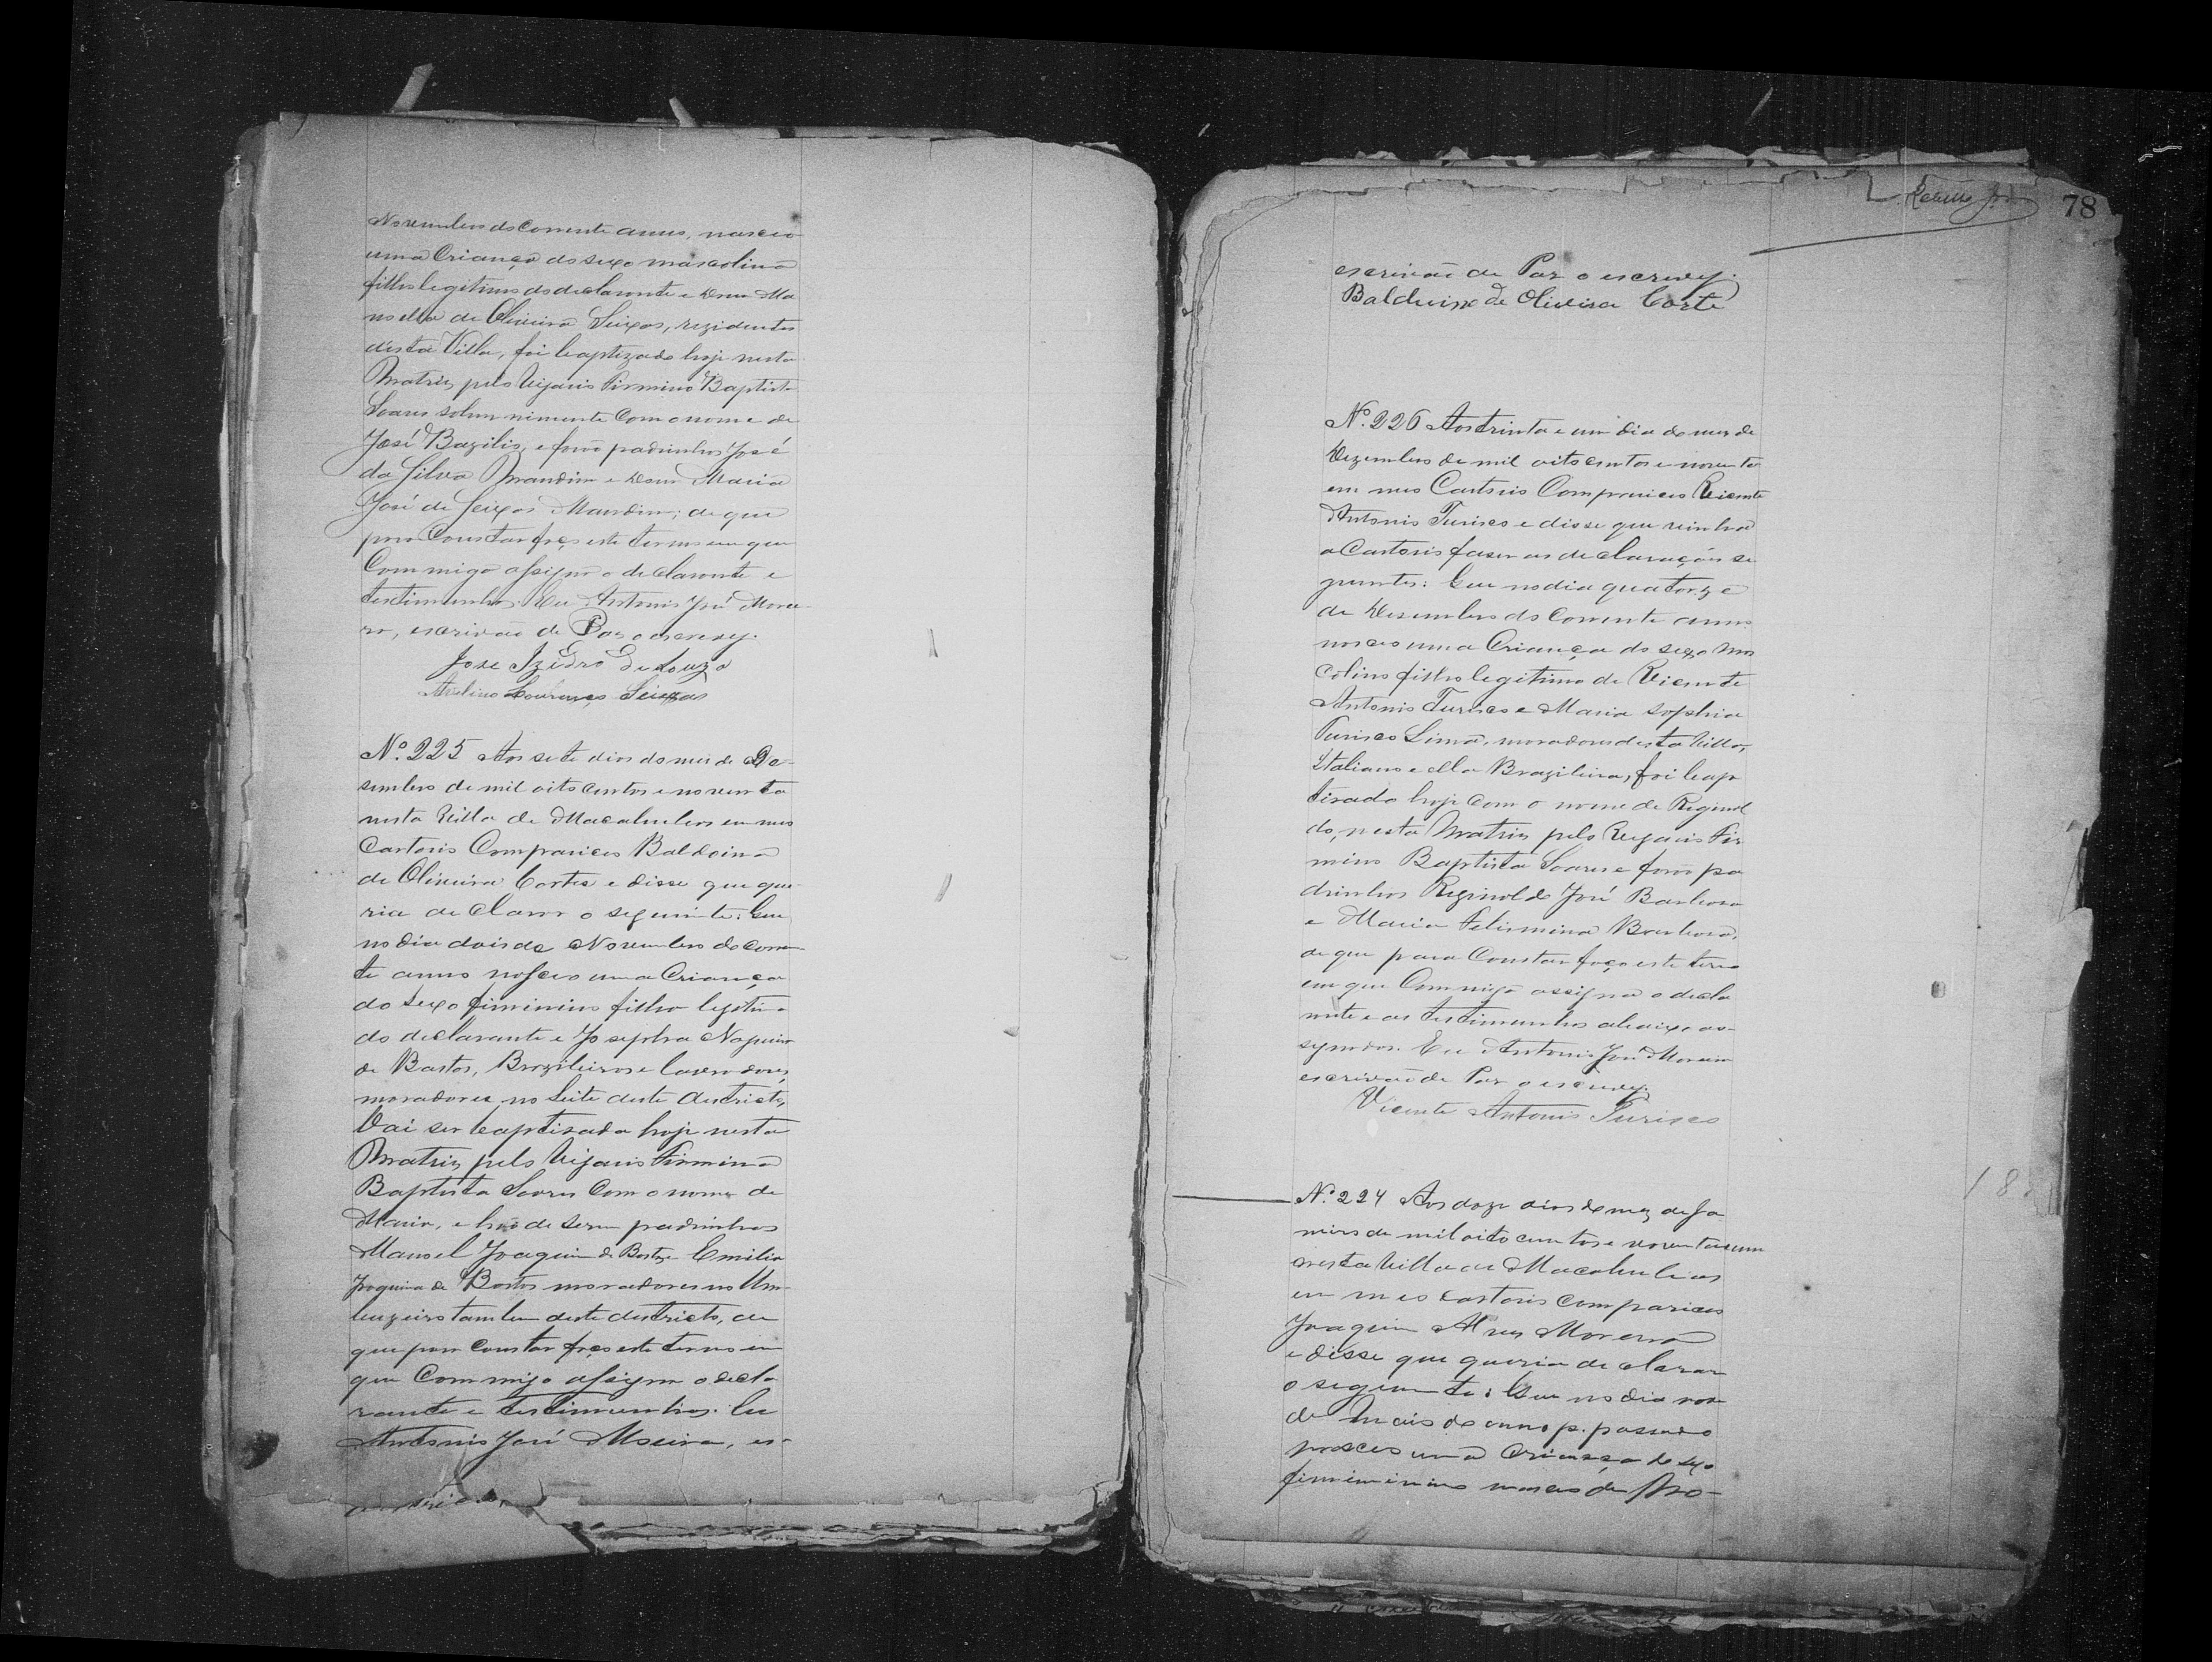 Novembro do Corrente anno, nasceo
uma Criança do sexo mascolino
filho legitimo do declarante e Dona Ma
noella de Oliveira Seixas, rezidentes
desta Villa, foi baptizado hoje nesta
Matriz pelo Vigario Firmino Baptista
Soares solemnimente Com o nome de
José Bazilio, e forão padrinhos José
da Silva Mandim e Dona Maria
José de Seixas Mandim; de que
para Constar faço este termo em que
Commigo assigna o declarante e
testimunhas. Eu Antonio José Morei-
ra, escrivão de Paz o escrevy.
Jose Izidro de Souza
Avelino Lourenço Seixas
Nº 225 Aos sete dias do mes de De-
sembro de mil oito centos e noventa
nesta Villa de Macahubas em meu
Cartorio Compariceo Baldoino
de Oliveira Cortes e disse que que-
ria declarar o seguinte: Que
no dia dois de Novembro do Corren
te anno nasceo uma Criança
do sexo fiminino filha legitima
do declarante e Josepha
de Bastos, Brazileiros e lavradores,
moradores no Leite deste destricto,
Vai ser baptisada hoje nesta
Matriz pelo Vigario Firmino
Baptista Soares Com o nome de
Maria, e hão de serem padrinhos
Manoel Joaquim de Bastos e Emilia
Joaquina de Bastos moradores no Um-
buzeiro tambem deste destricto, de
que para constar faço este termo em
que Commigo assigna o decla
rante e testimunhas. Eu
Antonio José Moreira, es-
78
escrivão de Paz o escrevy.
Balduino de Oliveira Corte
Nº. 226 Aos trinta e um dia do mes de
Dezembro de mil oito centos e noventa
em meu Cartorio Compariceo Vicente
Antonio Turisco e disse que vinha
a Cartorio faser as declarações se
guintes: Que no dia quatorze
de Desembro do Corrente anno
nasceo uma Criança do sexo mas
colino filho legitimo de Vicente
Antonio Turisco e Maria Sophia
Turisco Lima, moradores desta Villa,
Italiano e ella Brazileira, foi bap
tisado hoje com o nome de Reginol
do, nesta Matriz pelo Vigario Fir
mino Baptista Soares e forão pa
drinhos Reginoldo José Barbosa
e Maria Felismina Barbosa,
de que para Constar faço este termo
em que Commigo assigna o decla
rante e as testimunhas abaixo as-
signados. Eu Antonio José Moreira
escrivão de Paz o escrevy.
Vicente Antonio Turisco
Nº. 224 Aos doze dias do mez de Ja
neiro de mil oito centos e noventa e um
nesta Villa de Macahubas
em meo cartorio compariceo
Joaquim Alves Moreira
e disse que queria declarar
o seguinte: Que no dia nove
de Maio do anno p. passado
nasceo uma Criança do sexo
fiminino